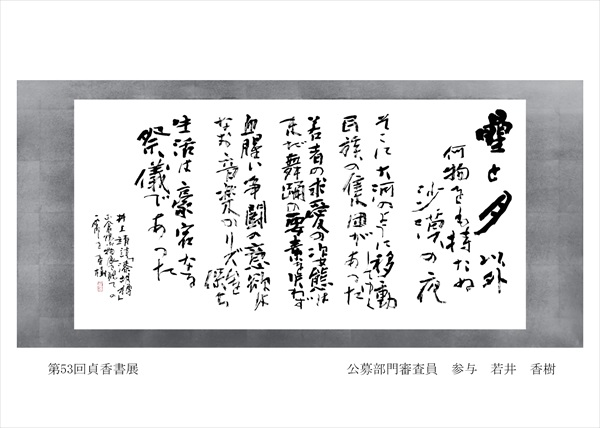 星と月以外
何物をも持たぬ
沙漠の夜
そこに大河のように移動してゆく
民族の集団があった
若者の求愛の姿態は
まだ舞踊の要素を失わず
血腥い争闘の意欲は
なお音楽のリズムを保ち
生活は豪宕なる
祭儀であった
井上靖詩漆胡樽
香樹
第53回貞香書展
公募部門審査員 参与 若井 香樹